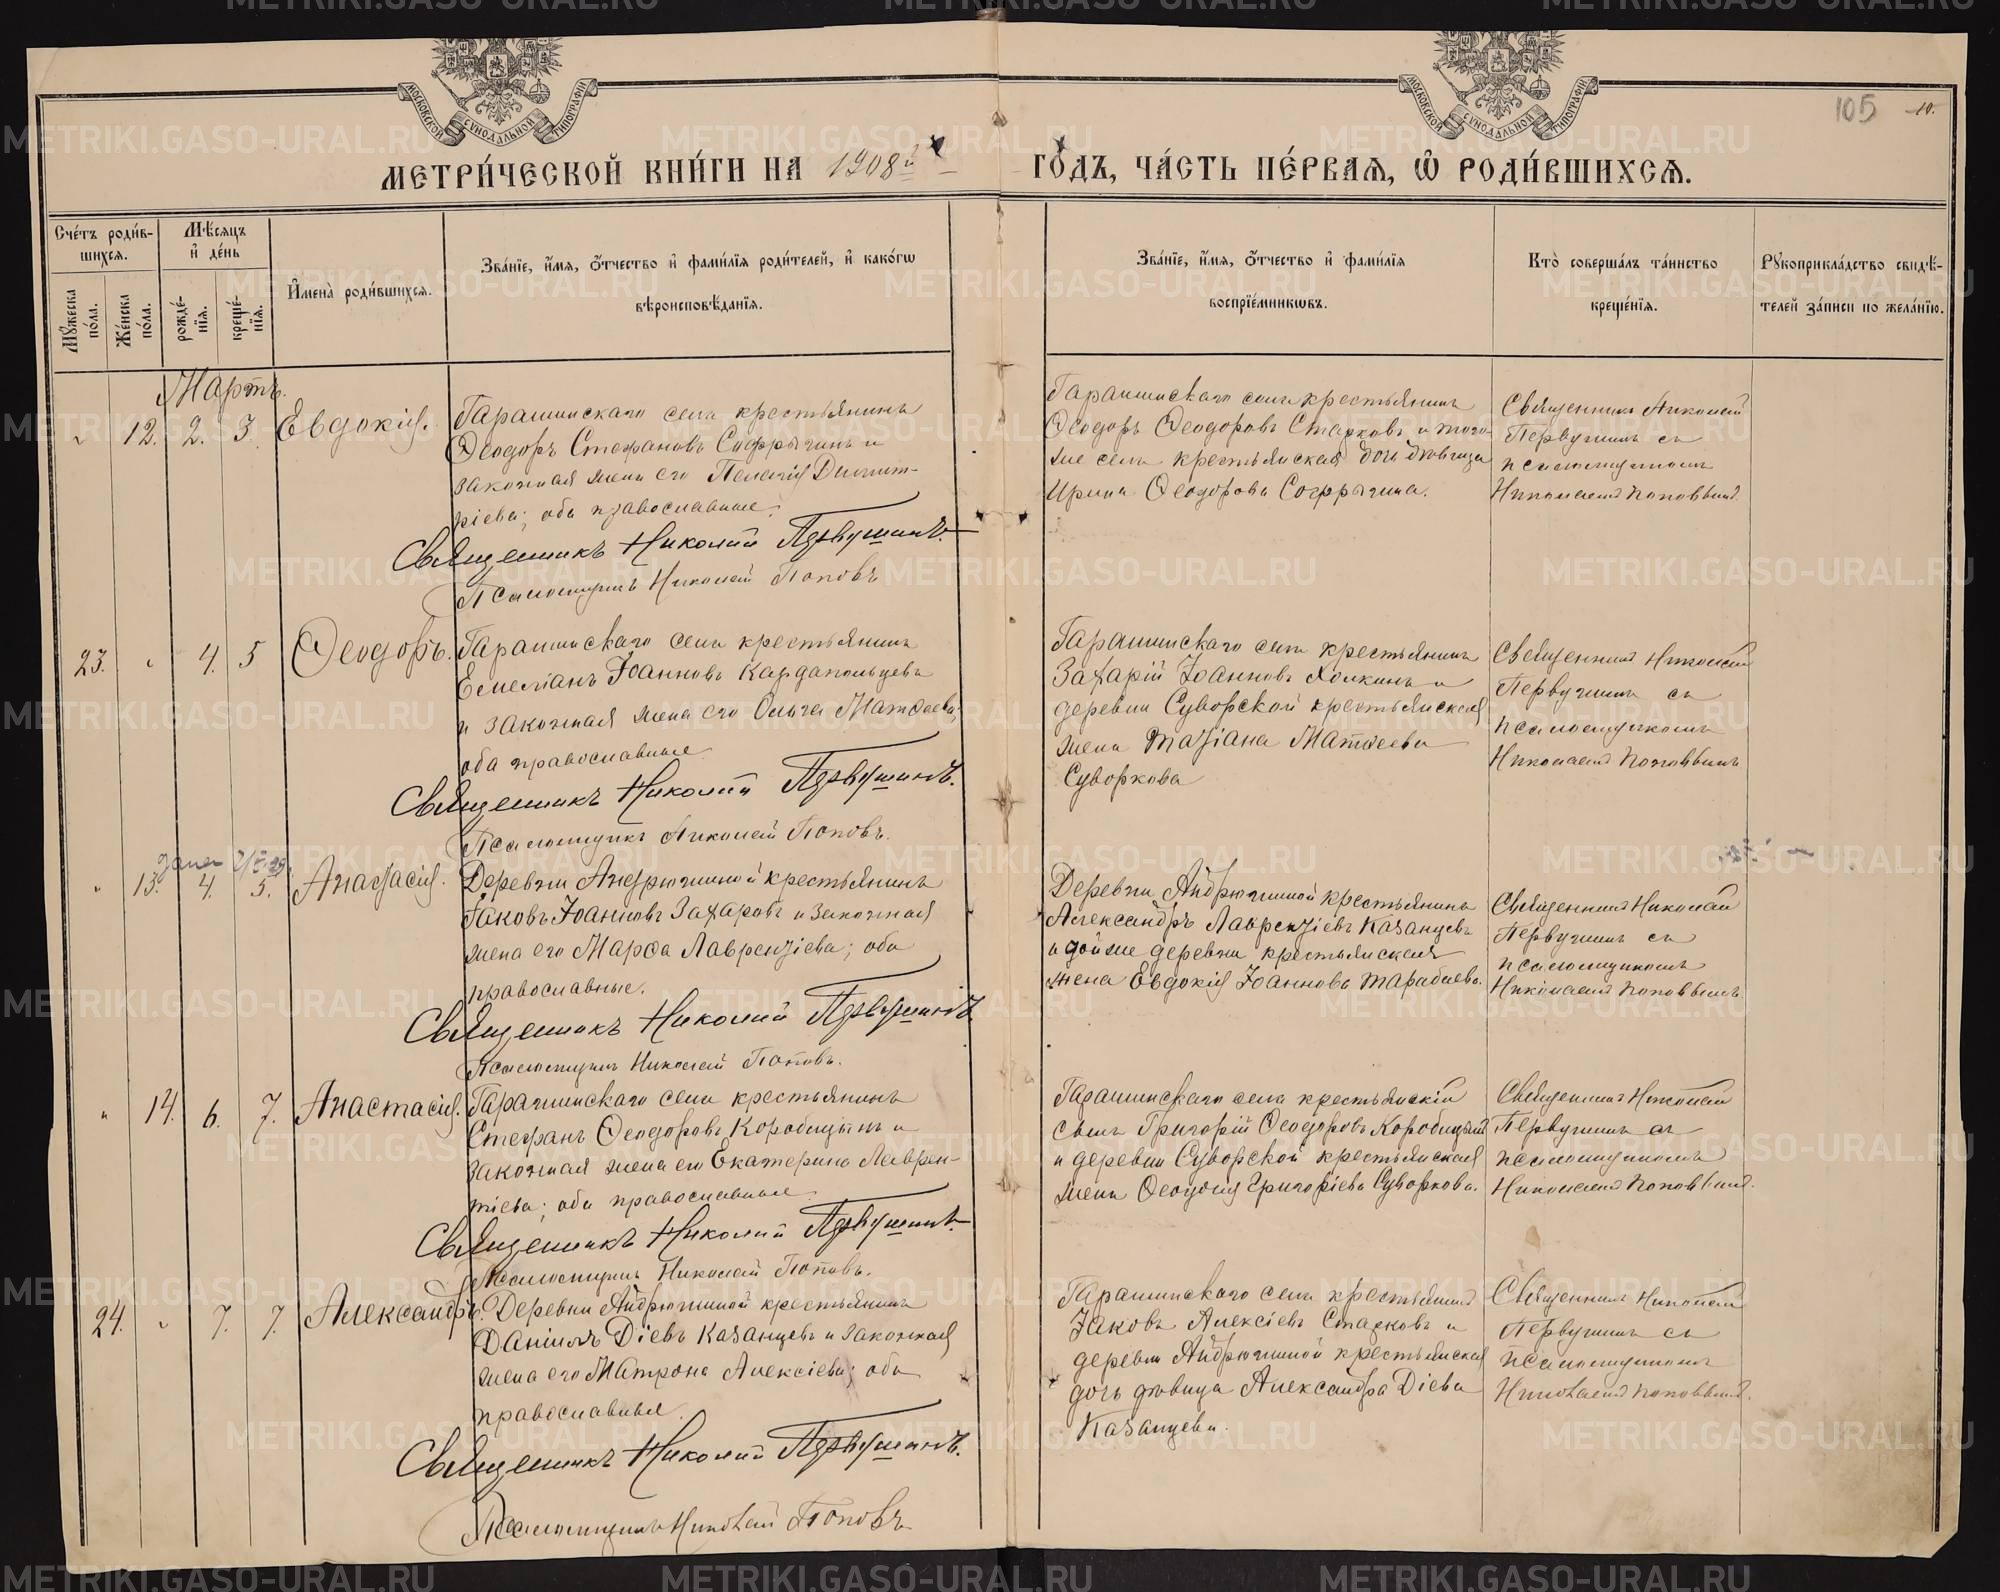 МОСКОВСКОЙ СѴНОДАЛЬНОЙ ТИПОГРАФІИ
МОСКОВСКОЙ СѴНОДАЛЬНОЙ ТИПОГРАФІИ
105
10.
МЕТРИ́ЧЕСКОЙ КНИ́ГИ НА 1908й ГО́ДЪ, ЧА́СТЬ ПЕ́РВАѦ, Ѽ РОДИ́ВШИХСѦ.
Сче́тъ роди́в-
шихсѧ.
Мꙋ́жеска по́ла.
Же́нска по́ла.
Мѣ́сѧцъ
и҆ де́нь
рожде́-
нїѧ.
креще́-
нїѧ.
И҆мена̀ роди́вшихсѧ.
Зва́нїе, и҆́мѧ, ѻ҆́тчество и҆ фами́лїѧ роди́телей, и҆ како́гѡ
вѣроисповѣ́данїѧ.
Зва́нїе, и҆́мѧ, ѻ҆́тчество и҆ фами́лїѧ
воспрїе́мникѡвъ.
Кто̀ соверша́лъ та́инство
креще́нїѧ.
Рꙋкоприкла́дство свидѣ́-
телей за́писи по жела́нїю.
Мартъ.
" 12. 2. 3 Евдокія.
Гарашинскаго села крестьянинъ
Ѳеодоръ Стефановъ Софрыгинъ и
законная жена его Пелагія Димит-
ріева; оба православные.
Священникъ Николай Первушинъ.
Псаломщикъ Николай Поповъ
Гарашинскаго села крестьянинъ
Ѳеодоръ Ѳеодоровъ Старковъ и того-
же села крестьянская дочь девица
Ирина Ѳеодорова Софрыгина.
Священникъ Николай
Первушинъ съ
псаломщикомъ
Николаемъ Поповымъ.
23. " 4. 5 Ѳеодоръ.
Гарашинскаго села крестьянинъ
Емеліанъ Іоанновъ Кардапольцевъ
и законная жена его Ольга Матѳеева;
оба православные
Священникъ Николай Первушинъ.
Псаломщикъ Николай Поповъ.
Гарашинскаго села крестьянинъ
Захарій Іоанновъ Холкинъ и
деревни Суворской крестьянская
жена Татіана Матѳеева
Суворкова
Священникъ Николай
Первушинъ съ
псаломщикомъ
Николаемъ Поповымъ
" 13. 4. 5. Анастасія.
Деревни Андрюшиной крестьянинъ
Іаковъ Іоанновъ Захаровъ и законная
жена его Марѳа Лаврентіева; оба
православные.
Священникъ Николай Первушинъ
Псаломщикъ Николай Поповъ.
Деревни Андрюшиной крестьянинъ
Александръ Лаврентіевъ Казанцевъ
и той же деревни крестьянская
жена Евдокія Іоаннова Тарабаева.
Священникъ Николай
Первушинъ съ
псаломщикомъ
Николаемъ Поповымъ.
" 14. 6. 7. Анастасія.
Гарашинскаго села крестьянинъ
Стефанъ Ѳеодоровъ Коробицынъ и
законная жена его Екатерина Лаврен-
тіева; оба православные.
Священникъ Николай Первушинъ.
Псаломщикъ Николай Поповъ.
Гарашинскаго села крестьянскій
сынъ Григорій Ѳеодоровъ Коробицынъ
и деревни Суворской крестьянская
жена Ѳеодосія Григоріева Суворкова.
Священникъ Николай
Первушинъ съ
псаломщикомъ
Николаемъ Поповымъ.
24. " 7. 7. Александръ.
Деревни Андрюшиной крестьянинъ
Даніилъ Діевъ Казанцевъ и законная
жена его Матрона Алексіева; оба
православныя.
Священникъ Николай Первушинъ.
Псаломщикъ Николай Поповъ
Гарашинскаго села крестьянинъ
Іаковъ Алексіевъ Старковъ и
деревни Андрюшиной крестьянская
дочь девица Александра Діева
Казанцева.
Священникъ Николай
Первушинъ съ
псаломщикомъ
Николаемъ Поповымъ.
METRIKI.GASO-URAL.RU